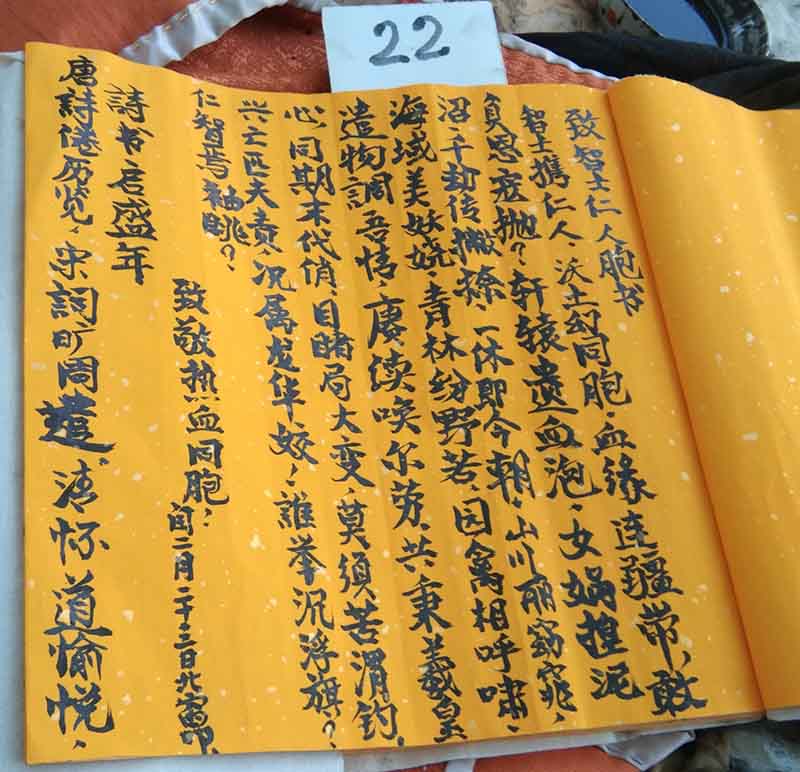 22
致智士仁人胞书
智士携仁人、沃土幻同胞、血缘连疆带、敢
負恩寇抛？轩辕遗血泡、女娲捏泥
沼、千劫传撇捺、一休即今朝、山川丽窈窕、
海域美妖娆、青林纷野若、园禽相呼啸、
造物調吾情、赓续唤尔劳、共秉羲皇
心、同期末代俏、目睹局大变、莫须苦渭钓、
兴亡匹夫责、况属龙华姣！誰举沉浮旗？
仁智焉袖眺？
致敬热血同胞！
闰二月二十三日北寅卯
詩书启盛年
唐詩倦历览、宋詞旷周遭、清怀道愉悦、